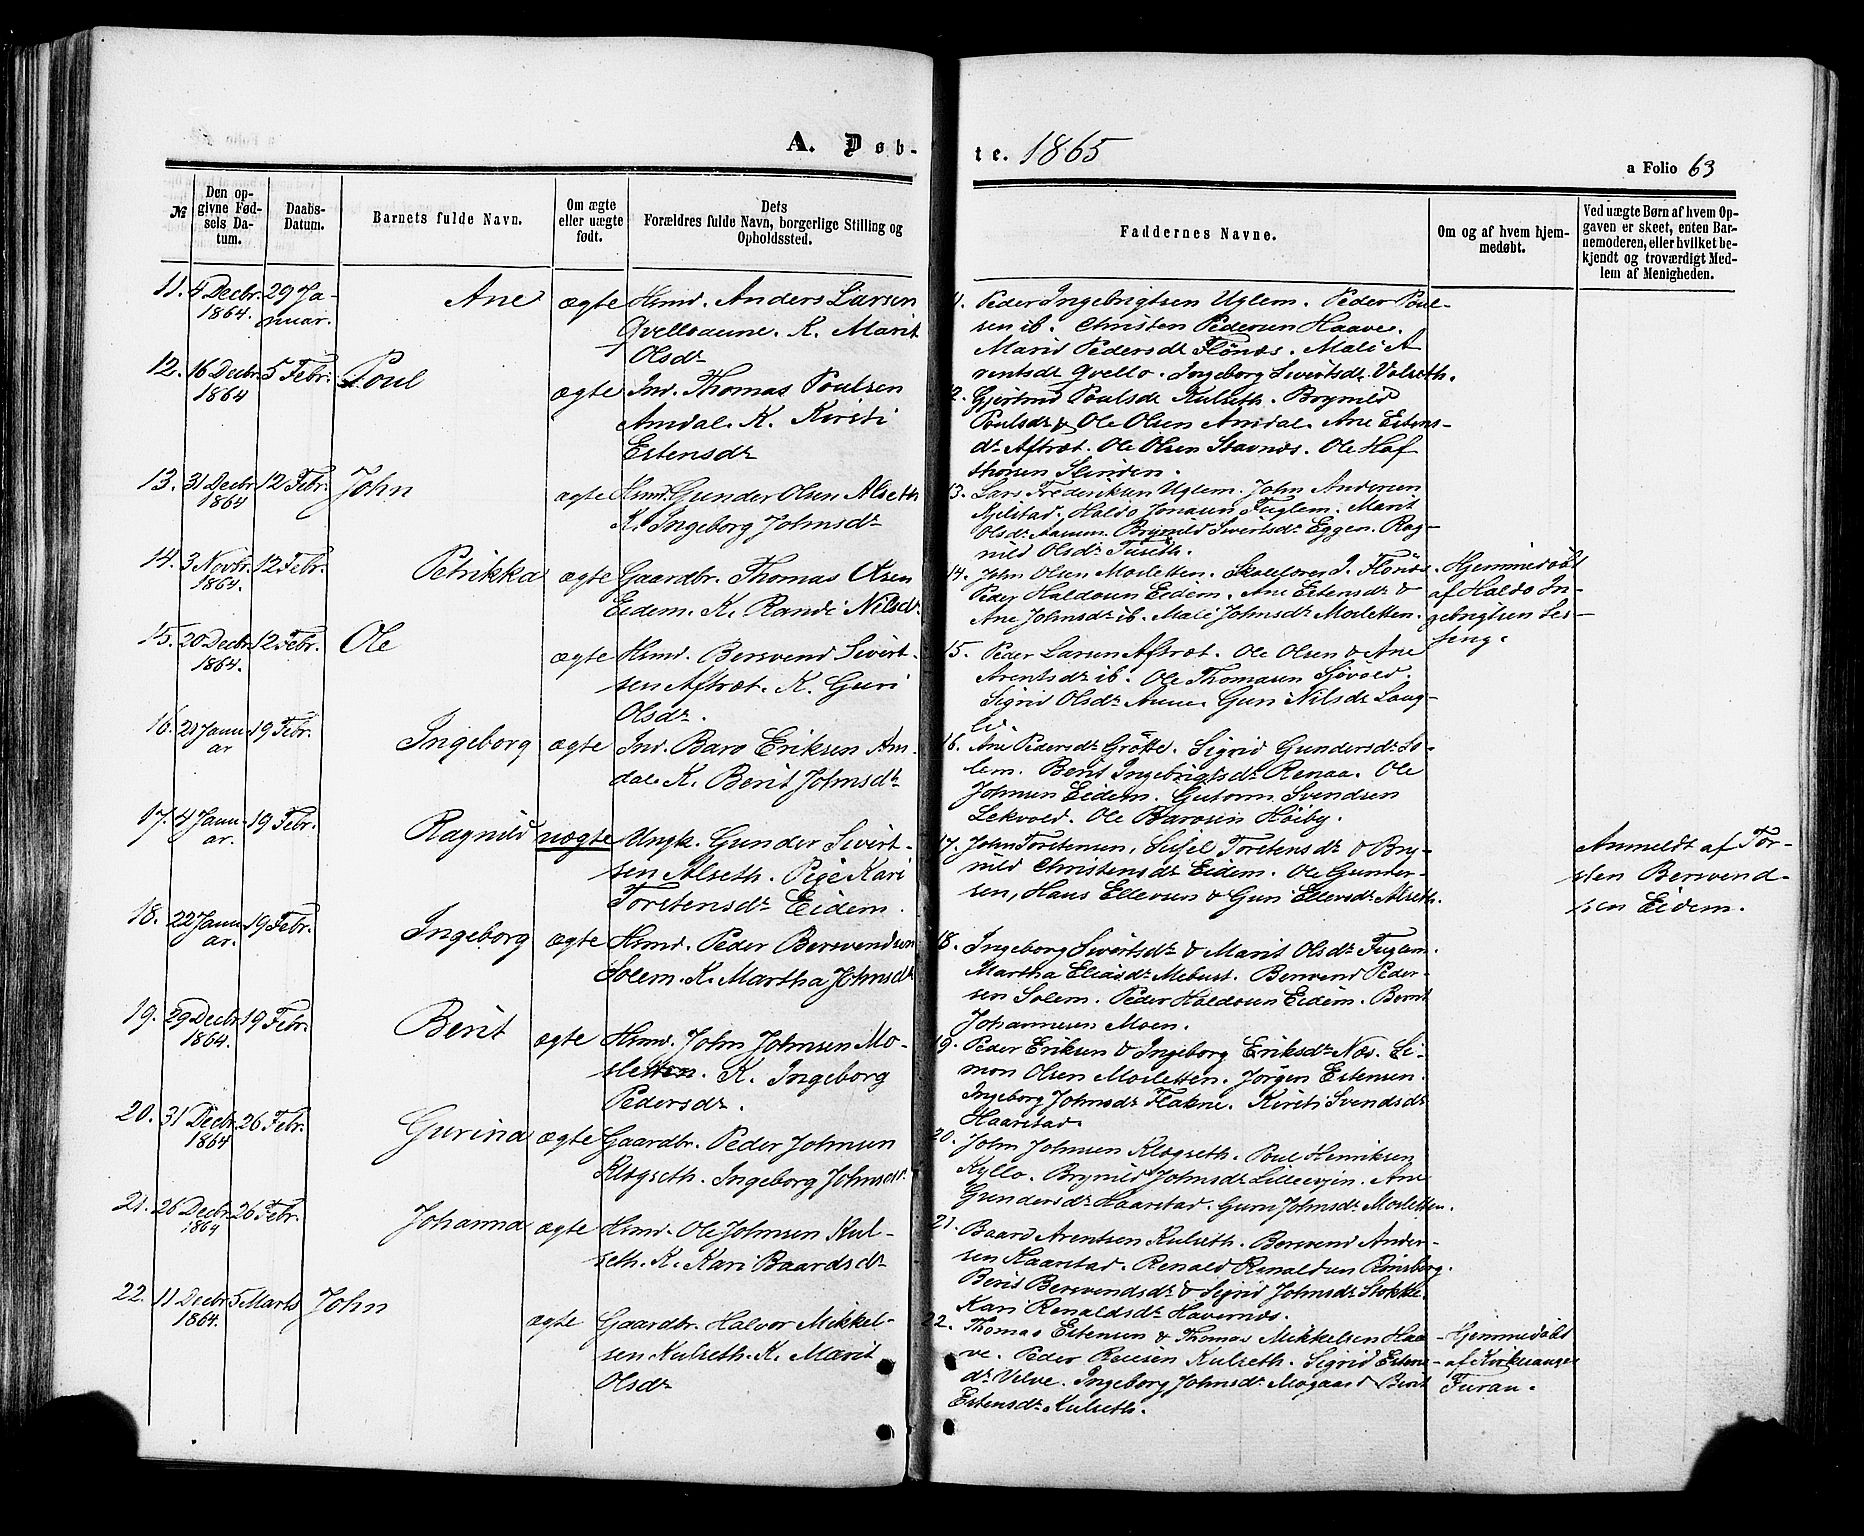 A. Døb-
te. 1865
a Folio 63
№
Den op-
givne Fød-
sels Da-
tum.
Daabs-
Datum.
Barnets fulde Navn.
Om ægte
eller uægte
født.
Dets
Forældres fulde Navn, borgerlige Stilling og
Opholdssted.
Faddernes Navne.
Om og af hvem hjem-
medøbt.
Ved uægte Børn af hvem Op-
gaven er skeet, enten Bar-
nemoderen, eller hvilket be-
kjendt og troværdigt Med-
lem af Menigheden.
11. 4 Decbr. 29 Ja- Ane ægte Hsmd. Anders Larsen
1864. nuar. Qvellodaune. K. Marit
Olsdr
11. Peder Ingebrigtsen Uglem. Peder Poul-
sen ib. Christen Pedersen Haave.
Marit Pedersdr Flönæs. Mali A
rentsdr Qvello. Ingeborg Sivertsdr Valseth.
12. 16 Decbr. 5 Febr. Poul ægte Ind. Thomas Poulsen
1864 Amdal. K. Kirsti
Estensdr
12. Gjertrud Poulsdr Kulseth. Brynild
Poulsdr & Ole Olsen Amdal. Ane Estens-
dr Aftræt. Ole Olsen Stavnæs. Ole Haf
thorsen Slinden.
13. 31 Decbr 12 Febr. John ægte Hsmd. Gunder Olsen Alseth
1864 K. Ingeborg Johnsdr
13. Lars Frederiksen Uglem. John Andersen
Kjelstad. Haldo Jonasen Fuglem. Marit
Olsdr Aasum. Brynild Sivertsdr Eggen. Rag-
nild Olsdr Tuseth.
14. 3 Novbr. 12 Febr. Petrikka ægte Gaardbr. Thomas Olsen
1864. Eidem. K. Randi Nilsdr
14. John Olsen Mosletten. Skolelærer J. Flönæs.
Peder Haldosen Eidem. Ane Estensdr &
Ane Johnsdr ib. Mali Johnsdr Mosletten.
Hjemmedøbt
af Haldo In-
gebrigtsen Ses-
seng.
15. 20 Decbr 12 Febr. Ole ægte Hsmd. Bersvend Sivert-
1864. sen Aftræt. K. Guri
Olsdr.
15. Peder Larsen Aftræt. Ole Olsen & Ane
Arentsdr ib. Ole Thomasen Sjövold.
Sigrid Olsdr Aune. Guri Nilsdr Laug-
li.
16. 21 Janu- 19 Febr. Ingeborg ægte Ind. Baro Eriksen Am-
ar dal. K. Berit Johnsdr
16. Ane Pedersdr Grötte. Sigrid Gundersdr So-
lem. Berit Ingebrigtsdr Renaa. Ole
Johnsen Eidem. Gutorm Svendsen
Lekvold. Ole Barosen Höiby.
17. 4 Janu- 19 Febr. Ragnild uægte Ungk. Gunder Sivert-
ar. sen Alseth. Pige Kari
Torstensdr Eidem.
17. John Torstensen, Sissel Torstensdr & Bry-
nild Christensdr Eidem. Ole Gunder-
sen, Hans Ellevsen & Guri Ellevsdr Alseth.
Anmeldt af Tor-
sten Bersvend-
sen Eidem.
18. 22 Janu- 19 Febr. Ingeborg ægte Hsmd. Peder Bersvendsen
ar. Solem. K. Martha Johnsdr
18. Ingeborg Sivertsdr & Marit Olsdr Fuglem.
Martha Eliasdr Mebust. Bersvend Peder-
sen Solem. Peder Haldosen Eidem. Bernt
Johannesen Moen.
19. 29 Decbr. 19 Febr. Berit ægte Hsmd. John Johnsen Mo-
1864. sletten. K. Ingeborg
Pedersdr.
19. Peder Eriksen & Ingeborg Eriksdr Næs. Si-
mon Olsen Mosletten. Jörgen Estensen.
Ingeborg Johnsdr Flakne. Kirsti Svendsdr
Haarstad.
20. 31 Decbr. 26 Febr. Gurina ægte Gaardbr. Peder Johnsen
1864 Klegseth. Ingeborg Johnsdr.
20. John Johnsen Klegseth. Poul Henriksen
Kyllo. Brynild Johnsdr Lilleevjen. Ane
Gundersdr Haarstad. Guru Johnsdr Mosletten.
21. 26 Decbr. 26 Febr. Johanna ægte Hsmd. Ole Johnsen Kul-
1864 seth. K. Kari Baardsdr
21. Baard Arentsen Kulseth. Bersvend Ander-
sen Haarstad. Renald Renaldsen Rönsberg.
Berit Bersvendsdr & Sigrid Johnsdr Stokke.
Kari Renaldsdr Havernæs.
22. 11 Decbr 5 Marts John ægte Gaardbr. Halvor Mikkel-
1864. sen Kulseth. K. Marit
Olsdr
22. Thomas Estensen & Thomas Mikkelsen Haa
ve. Peder Kulseth. Sigrid Estens-
dr Velve. Ingeborg Johnsdr Mogaard Berit
Estensdr Kulseth.
Hjemmedøbt
af Kirkesanger
Furan.